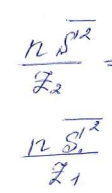 n S'²
Z₂ =
n S.'²
Z₁